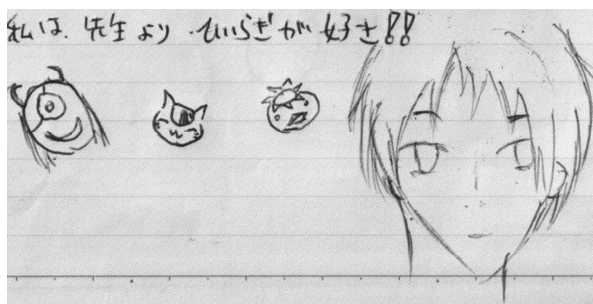 私は、先生より、ひいらぎが好き!!